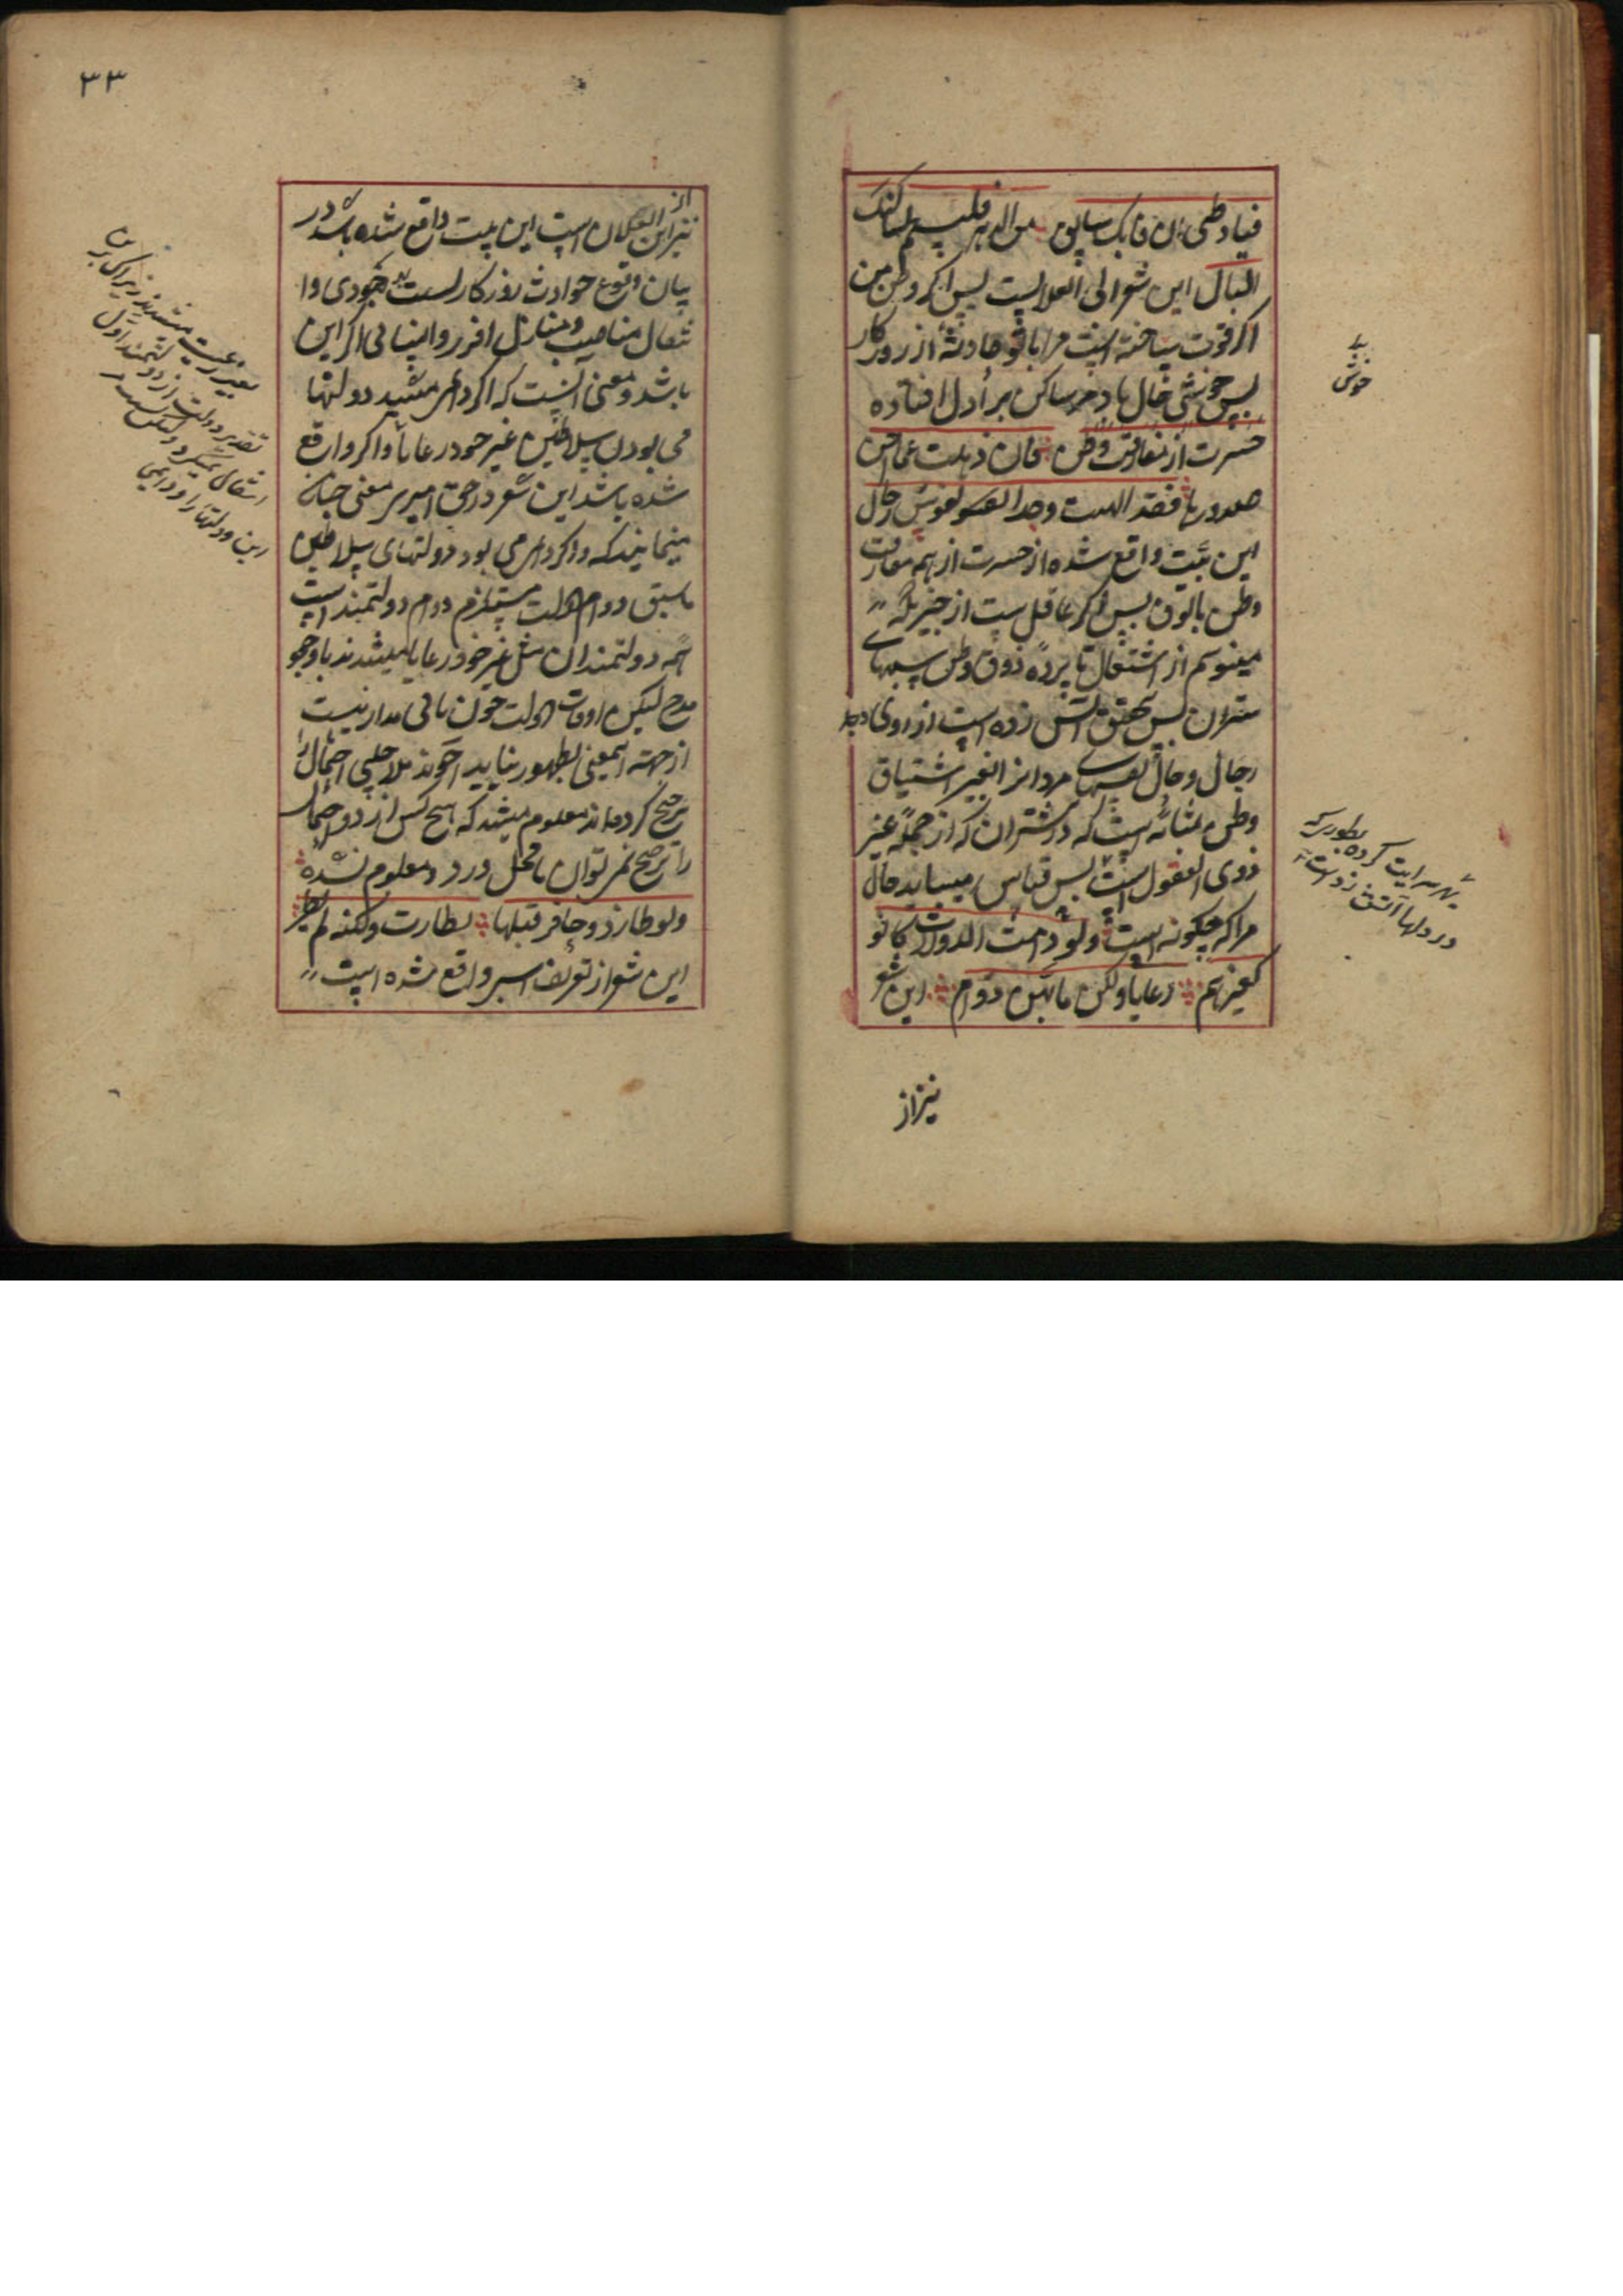 فیا وطنی ان فاتک سابق من الدهر فلینعم لساکنک
البال این شعر ابی العلاست پس اگر وطن من
اگر فوت ساخته است مرا بتو حادثهٔ از روزکار
پس خوشی حال باد مر ساکن ترا دل افتاده
حسرت از مفارقت وطن فان ذهلت عما اجن
صدورها فقد الهبت وجدا نفوس رجال
این بیت واقع شده از حسرت از هم مفارقت
وطن مالوق پس اگر غافل ست از چیزیکه
از اشتعال نایره ذوق وطن سینهای
شتران پس بتحقیق آتش زده است از روی وجد
رجال و حال نفسهای مردانرا بغیر اشتیاق
وطن بمثابه است که در شتران که از جمله غیر
ذوی العقول است پس قیاس میباید حال
مرا که چکونه است ولو دامت الدولات کانوا
کغیرهم رعایا ولکن ما لهن دوام این شعر
نیز از
یے
خوش
بطوریکه
سرایت کرده
در دلها آتش زده است
۳۳
نیز از ابن است این بیت واقع شده باشد در
بیان وقوع حوادث روزکار است بی خودی وا
نتقال مناصب و منازل اگر این
باشد و معنی انست که اگر دایمی میشدند دولتها
می بودن سلاطین غیر خود رعایا و اگر واقع
شده باشد این شعر در حق امیری معنی چنان
مینمایند که و اگر دایمی می بود دولتهای سلاطین
ماسبق دوام دولت مستلزم دوام دولتمند است
همه دولتمندان مثل غیر خود رعایا میشدند باوجود
مدح لیکن اوقات دولت چون باقی مدار نیست
از جهته اینمعنی بظهور نیاید آخوند ملا چلپی احتمال را
ترجیح کرده اند معلوم میشد که هیچ کس از دو احتمال
را ترجیح نمیتوان بمحل درد و معلوم نشده
ولو طار ذو حافر قبلها لطارت ولکنه لم یطر
این شعر از تعریف اسپ واقع شده است
رعیت میشدند زیرا که برین
تقدیر دولت از دولتمند اول
انتقال نمیکرد
این دولتها را دوامی